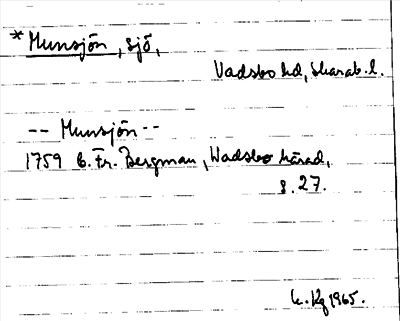 * Munsjön, sjö,
Vadsbo hd, Skarab. l.
-- Munsjön --
1759 C. Fr. Bergman, Wadsbo härad,
s. 27.
1965.